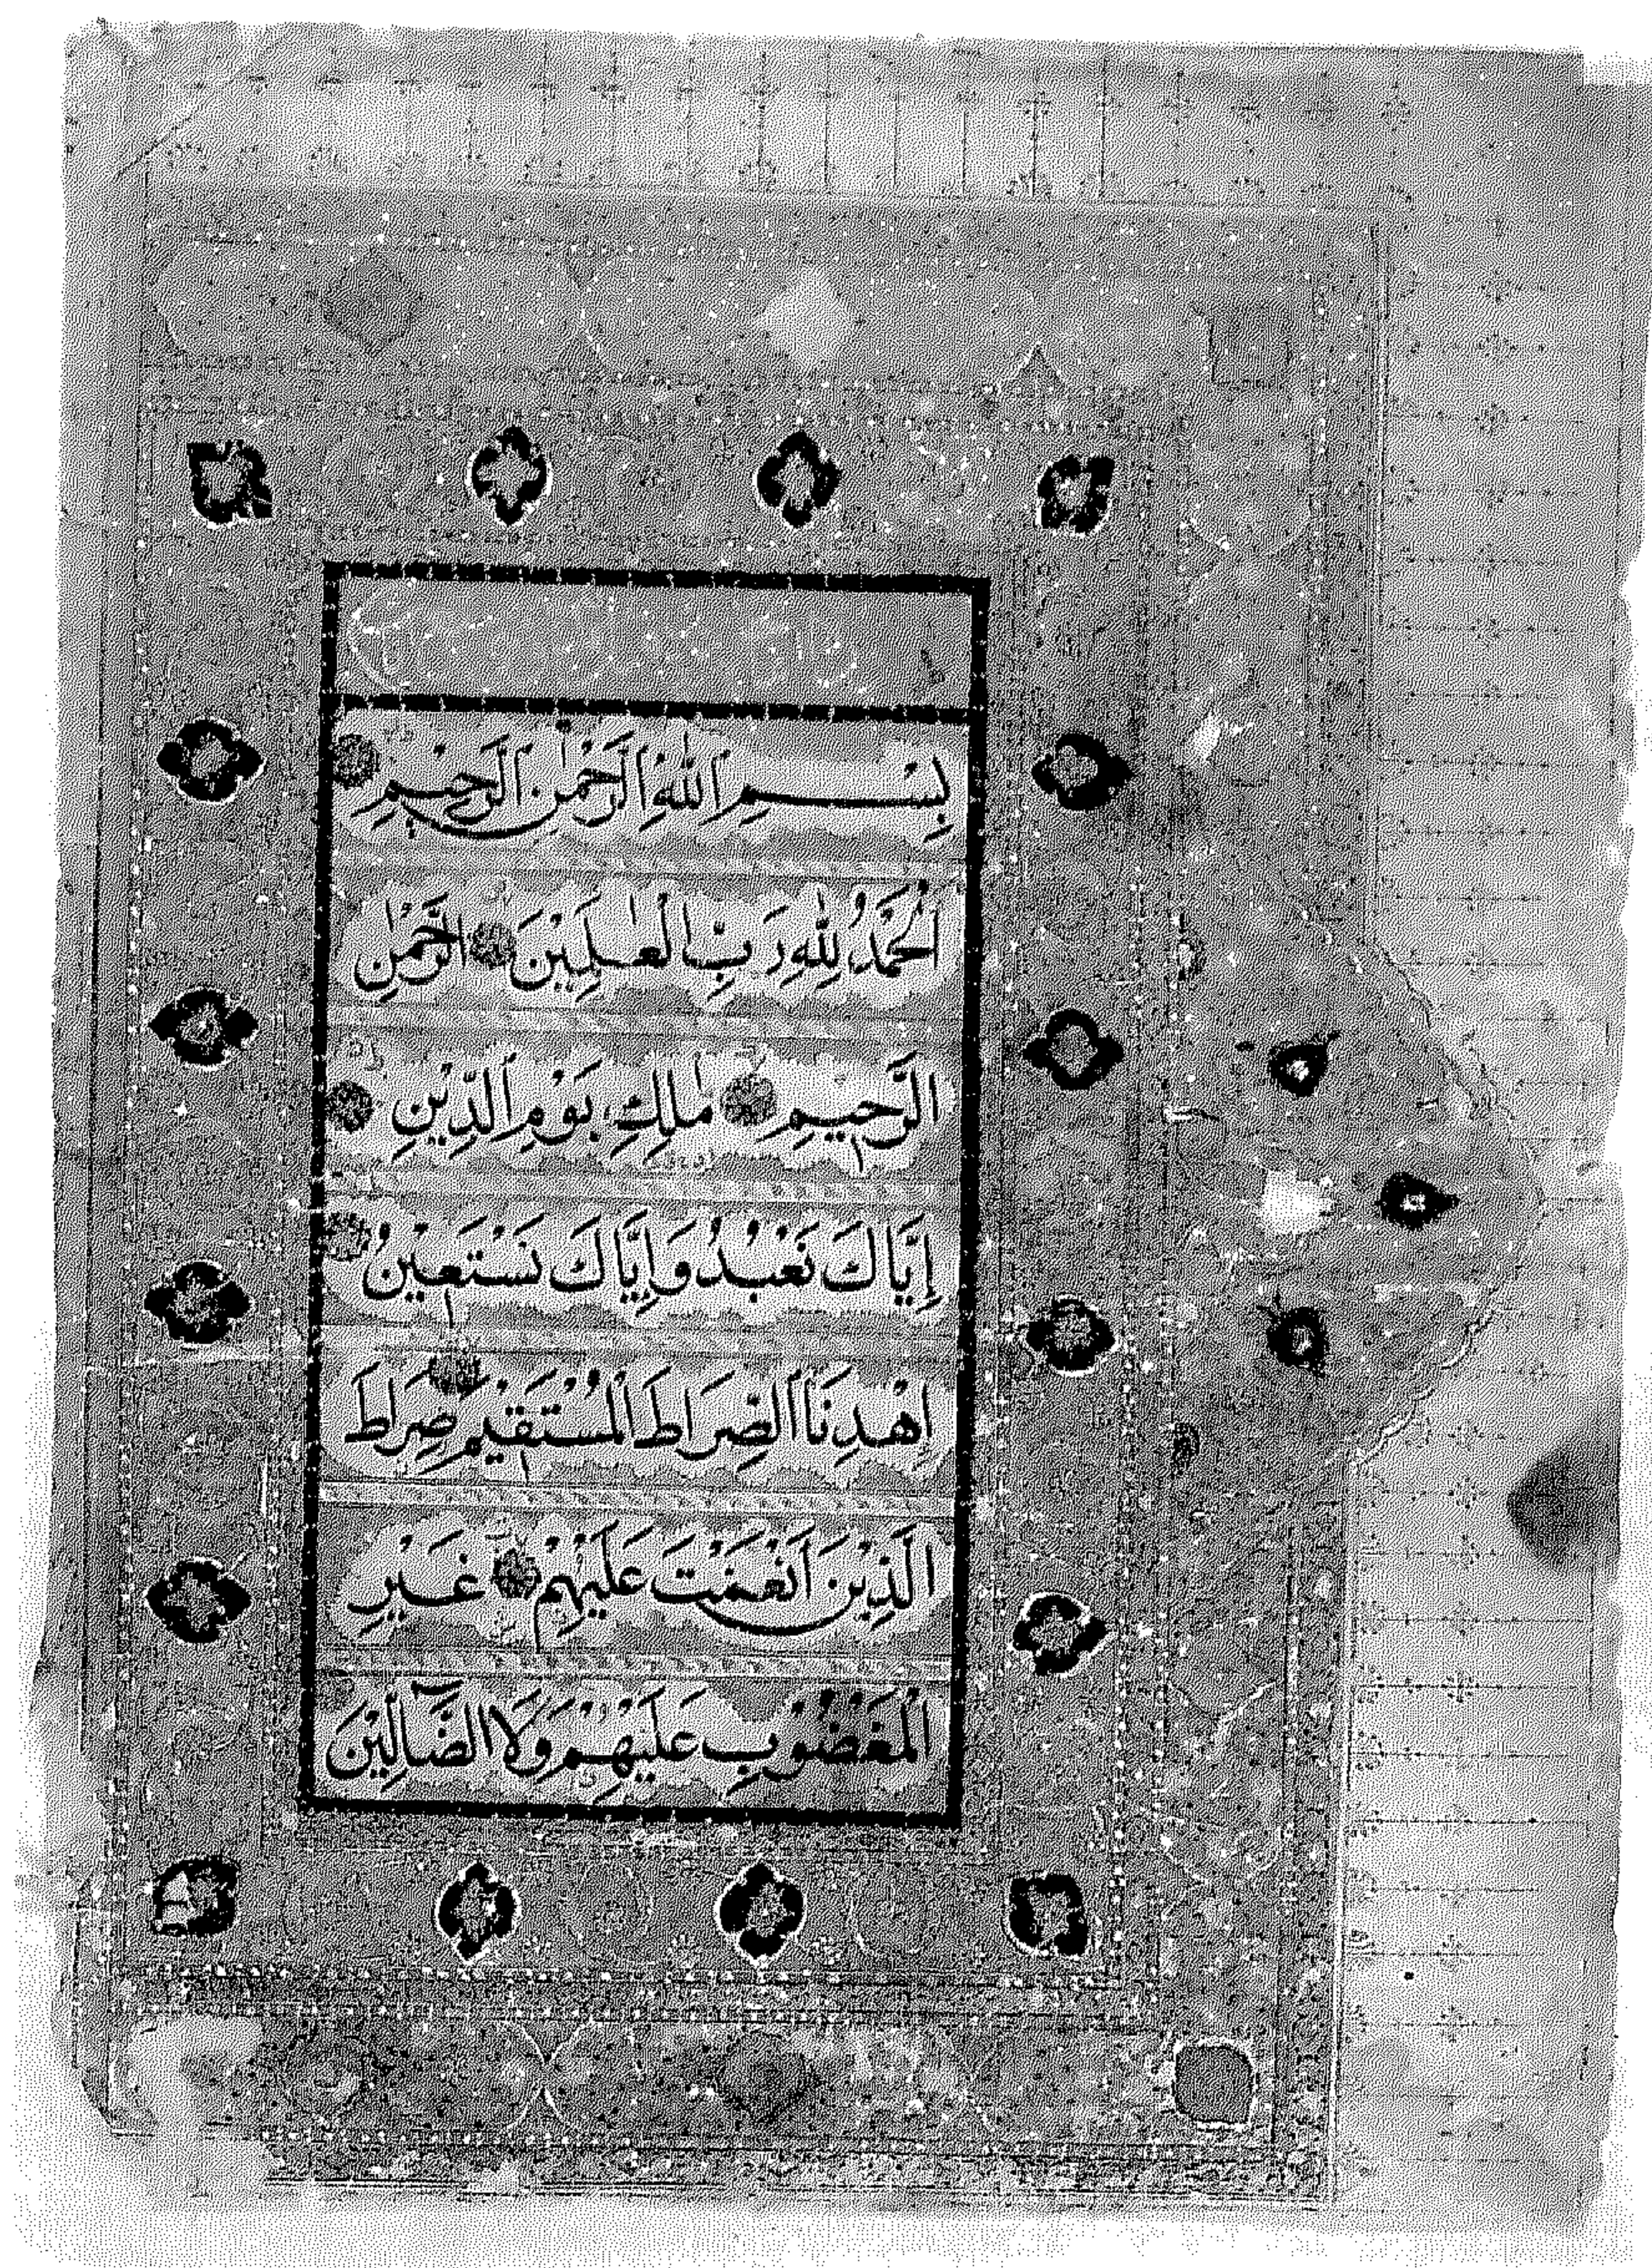 بِسْمِ اللهِ الرَّحْمٰنِ الرَّحِيْمِ
اَلْحَمْدُ لِلّٰهِ رَبِّ الْعٰلَمِيْنَ الرَّحْمٰنِ
الرَّحِيْمِ مٰلِكِ يَوْمِ الدِّيْنِ
اِيَّاكَ نَعْبُدُ وَاِيَّاكَ نَسْتَعِيْنُ
اِهْدِنَا الصِّرَاطَ الْمُسْتَقِيْمَ صِرَاطَ
الَّذِيْنَ اَنْعَمْتَ عَلَيْهِمْ غَيْرِ
الْمَغْضُوْبِ عَلَيْهِمْ وَلَا الضَّآلِّيْنَ